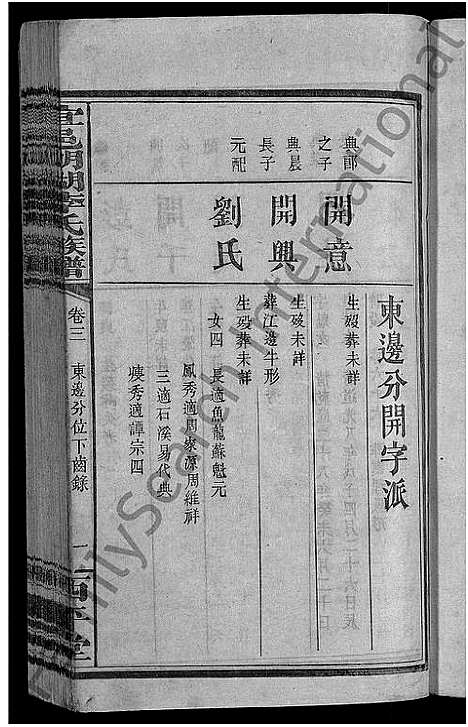 東邊分開字派
典郎之子
開意
生歿葬未詳
典晨長子
開興
生歿未詳
葬江邊牛形
元配
劉氏
生歿葬未詳
女四 長適魚龍蘇魁元
鳳秀適周家源周維祥
三適石溪易代典
秀適譚宗四
宜邑明湖李氏族譜
卷三
東邊分位下齒錄
一
西平堂
FamilySearch International